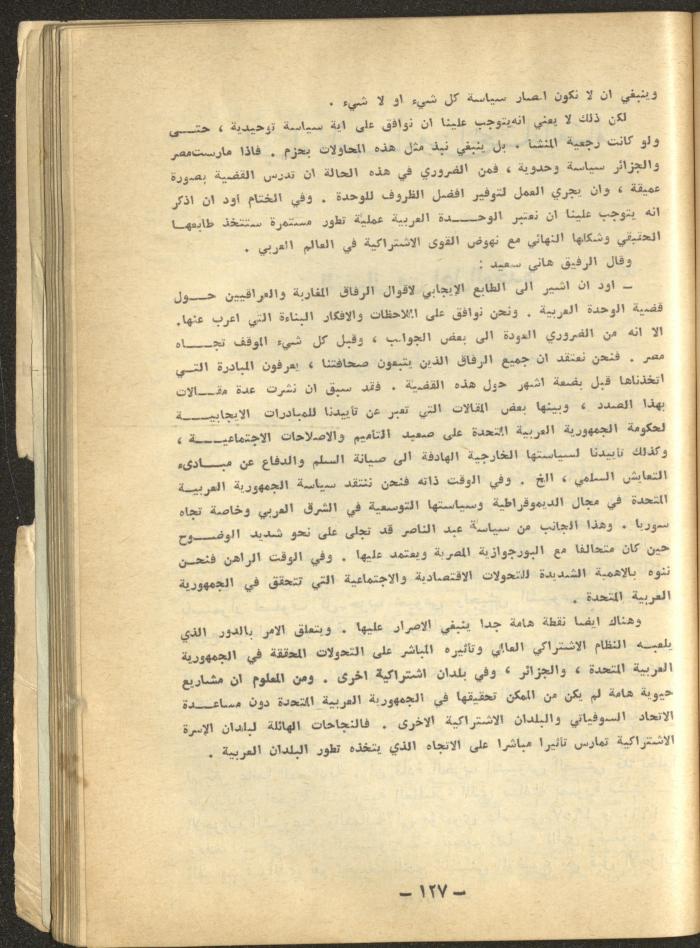 وينبغي ان لا نكون انصار سياسة كل شيء او لا شيء .
لكن ذلك لا يعني انه يتوجب علينا ان نوافق على اية سياسة توحيدية ، حتى
ولو كانت رجعية المنشأ . بل ينبغي نبذ مثل هذه المحاولات بحزم . فاذا مارست مصر
والجزائر سياسة وحدوية ، فمن الضروري في هذه الحالة ان تدرس القضية بصورة
عميقة ، وان يجري العمل لتوفير افضل الظروف للوحدة . وفي الختام اود ان اذكر
انه يتوجب علينا ان نعتبر الوحدة العربية عملية تطور مستمرة ستتخذ طابعها
الحقيقي وشكلها النهائي مع نهوض القوى الاشتراكية في العالم العربي .
وقال الرفيق هاني سعيد :
ـ اود ان اشير الى الطابع الايجابي لاقوال الرفاق المغاربة والعراقيين حول
قضية الوحدة العربية . ونحن نوافق على الملاحظات والافكار البناءة التي اعرب عنها.
الا انه من الضروري العودة الى بعض الجوانب ، وقبل كل شيء الموقف تجاه
مصر . فنحن نعتقد ان جميع الرفاق الذين يتبعون صحافتنا ، يعرفون المبادرة التي
اتخذناها قبل بضعة اشهر حول هذه القضية . فقد سبق ان نشرت عدة مقالات
بهذا الصدد ، وبينها بعض المقالات التي تعبر عن تأييدنا للمبادرات الايجابية
لحكومة الجمهورية العربية المتحدة على صعيد التأميم والاصلاحات الاجتماعية ،
وكذلك تأييدنا لسياستها الخارجية الهادفة الى صيانة السلم والدفاع عن مبادىء
التعايش السلمي ، الخ . وفي الوقت ذاته فنحن ننتقد سياسة الجمهورية العربية
المتحدة في مجال الديموقراطية وسياستها التوسعية في الشرق العربي وخاصة تجاه
سوريا . وهذا الجانب من سياسة عبد الناصر قد تجلى على نحو شديد الوضوح
حين كان متحالفا مع البورجوازية المصرية ويعتمد عليها . وفي الوقت الراهن فنحن
ننوه بالاهمية الشديدة للتحولات الاقتصادية والاجتماعية التي تتحقق في الجمهورية
العربية المتحدة .
وهناك ايضا نقطة هامة جدا ينبغي الاصرار عليها . ويتعلق الامر بالدور الذي
يلعبه النظام الاشتراكي العالمي وتأثيره المباشر على التحولات المحققة في الجمهورية
العربية المتحدة ، والجزائر ، وفي بلدان اشتراكية اخرى . ومن المعلوم ان مشاريع
حيوية هامة لم يكن من الممكن تحقيقها في الجمهورية العربية المتحدة دون مساعدة
الاتحاد السوفياتي والبلدان الاشتراكية الاخرى . فالنجاحات الهائلة لبلدان الاسرة
الاشتراكية تمارس تأثيرا مباشرا على الاتجاه الذي يتخذه تطور البلدان العربية .
ـ ١٢٧ ـ